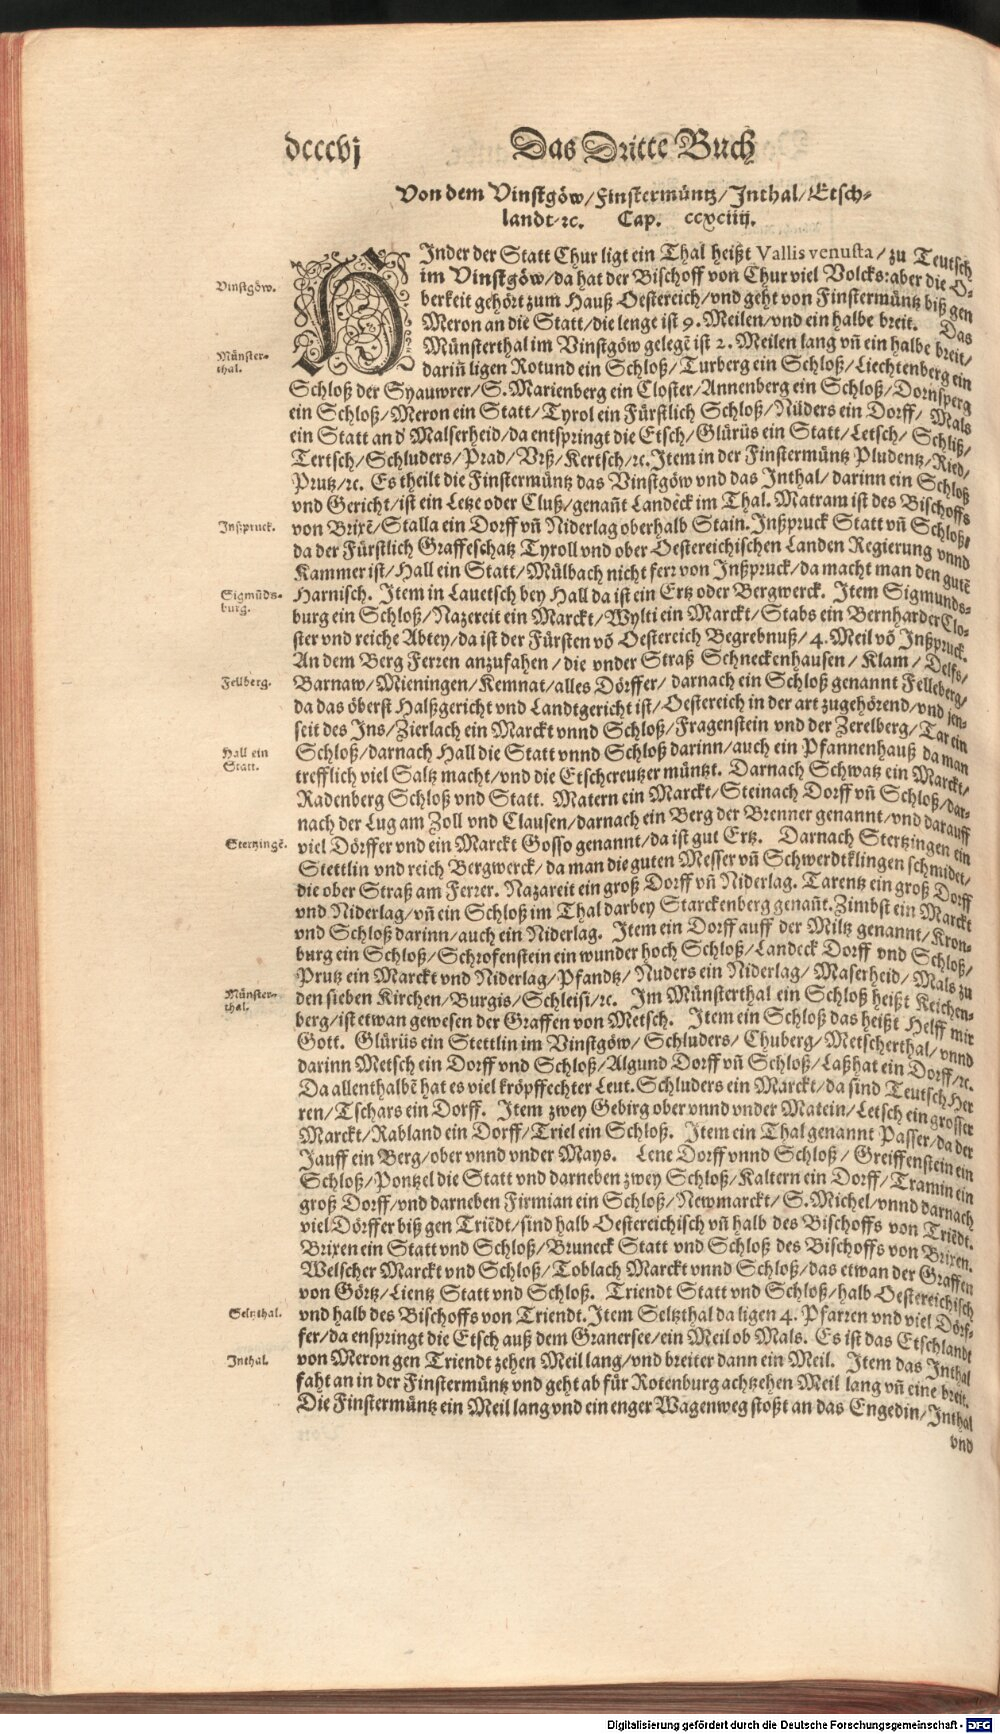 dcccvj Das Dritte Buch
Von dem Vinstgöw/Finstermüntz/Inthal/Etsch-
landt/ꝛc. Cap. ccxciiij.
HInder der Statt Chur ligt ein Thal heißt Vallis venusta/zu Teutsch
Vinstgöw.
im Vinstgöw/da hat der Bischoff von Chur viel Volcks:aber die O-
berkeit gehört zum Hauß Oestereich/vnd geht von Finstermüntz biß gen
Meron an die Statt/die lenge ist 9. Meilen/vnd ein halbe breit. Das
Münster-
thal.
Münsterthal im Vinstgöw gelegẽ ist 2. Meilen lang vñ ein halbe breit/
dariñ ligen Rotund ein Schloß/Turberg ein Schloß/Liechtenberg ein
Schloß der Syauwrer/S. Marienberg ein Closter/Annenberg ein Schloß/Dornsperg
ein Schloß/Meron ein Statt/Tyrol ein Fürstlich Schloß/Nüders ein Dorff/ Mals
ein Statt an d' Malserheid/da entspringt die Etsch/Glürüs ein Statt/Letsch/ Schliß/
Tertsch/Schluders/Prad/Vrß/Kertsch/ꝛc.Item in der Finstermüntz Pludentz/Ried/
Prutz/ꝛc. Es theilt die Finstermüntz das Vinstgöw vnd das Inthal/ darinn ein Schloß
vnd Gericht/ist ein Letze oder Cluß/genañt Landeck im Thal. Matram ist des Bischoffs
Inßpruck.
von Brixẽ/Stalla ein Dorff vñ Niderlag oberhalb Stain. Inßpruck Statt vñ Schloß/
da der Fürstlich Graffeschatz Tyroll vnd ober Oestereichischen Landen Regierung vnnd
Kammer ist/Hall ein Statt/Mülbach nicht ferr von Inßpruck/da macht man den gutẽ
Sigmũds-
burg.
Harnisch. Item in Lauetsch bey Hall da ist ein Ertz oder Bergwerck. Item Sigmunds-
burg ein Schloß/Nazereit ein Marckt/Wylti ein Marckt/Stabs ein Bernharder Clo-
ster vnd reiche Abtey/da ist der Fürsten võ Oestereich Begrebnuß/ 4. Meil võ Inßpruck.
An dem Berg Ferren anzufahen/die vnder Straß Schneckenhausen/Klam/Delfs/
Fellberg.
Barnaw/Mieningen/Kemnat/alles Dörffer/ darnach ein Schloß genannt Felleberg/
da das öberst Halßgericht vnd Landtgericht ist/Oestereich in der art zugehörend/vnd jen-
seit des Ins/Zierlach ein Marckt vnnd Schloß/Fragenstein vnd der Zerelberg/Tar ein
Hall ein
Statt.
Schloß/darnach Hall die Statt vnnd Schloß darinn/auch ein Pfannenhauß da man
trefflich viel Saltz macht/vnd die Etschcreutzer müntzt. Darnach Schwatz ein Marckt/
Radenberg Schloß vnd Statt. Matern ein Marckt/Steinach Dorff vñ Schloß/dar-
nach der Lug am Zoll vnd Clausen/darnach ein Berg der Brenner genannt/vnd darauff
Stertzingẽ.
viel Dörffer vnd ein Marckt Gosso genannt/da ist gut Ertz. Darnach Stertzingen ein
Stettlin vnd reich Bergwerck/da man die guten Messer vñ Schwerdtklingen schmidet/
die ober Straß am Ferrer. Nazareit ein groß Dorff vñ Niderlag. Tarentz ein groß Dorff
vnd Niderlag/vñ ein Schloß im Thal darbey Starckenberg genañt. Zimbst ein Marckt
vnd Schloß darinn/auch ein Niderlag. Item ein Dorff auff der Miltz genannt/Kron-
burg ein Schloß/Schrofenstein ein wunder hoch Schloß/Landeck Dorff vnd Schloß/
Prutz ein Marckt vnd Niderlag/Pfandtz/Nuders ein Niderlag/Maserheid/Mals zu
Münster-
thal.
den sieben Kirchen/Burgis/Schleisi/ꝛc. Im Münsterthal ein Schloß heißt Keichen-
berg/ist etwan gewesen der Graffen von Metsch. Item ein Schloß das heißt Helff mir
Gott. Glürüs ein Stettlin im Vinstgöw/Schluders/Chuberg/Metscherthal/vnnd
darinn Metsch ein Dorff vnd Schloß/Algund Dorff vñ Schloß/Laßhat ein Dorff/ꝛc.
Da allenthalbẽ hat es viel kröpffechter Leut. Schluders ein Marckt/da sind Teutsch Her
ren/Tschars ein Dorff. Item zwey Gebirg ober vnnd vnder Matein/Letsch ein grosser
Marckt/Rabland ein Dorff/Triel ein Schloß. Item ein Thal genannt Passer/da der
Jauff ein Berg/ober vnnd vnder Mays. Lene Dorff vnnd Schloß/Greiffenstein ein
Schloß/Pontzel die Statt vnd darneben zwey Schloß/Kaltern ein Dorff/Tramin ein
groß Dorff/vnd darneben Firmian ein Schloß/Newmarckt/S. Michel/vnnd darnach
viel Dörffer biß gen Triẽdt/sind halb Oestereichisch vñ halb des Bischoffs von Triẽdt.
Brixen ein Statt vnd Schloß/Bruneck Statt vnd Schloß des Bischoffs von Brixen.
Welscher Marckt vnd Schloß/Toblach Marckt vnnd Schloß/das etwan der Graffen
von Görtz/Lientz Statt vnd Schloß. Triendt Statt vnd Schloß/halb Oestereichisch
Seltzthal.
vnd halb des Bischoffs von Triendt. Item Seltzthal da ligen 4. Pfarren vnd viel Dörf-
fer/da enspringt die Etsch auß dem Granersee/ein Meil ob Mals. Es ist das Etschlandt
Inthal.
von Meron gen Triendt zehen Meil lang/vnd breiter dann ein Meil. Item das Inthal
faht an in der Finstermüntz vnd geht ab für Rotenburg achtzehen Meil lang vñ eine breit.
Die Finstermüntz ein Meil lang vnd ein enger Wagenweg stoßt an das Engedin/Inthal
vnd
Digitalisierung gefördert durch die Deutsche Forschungsgemeinschaft - DFG